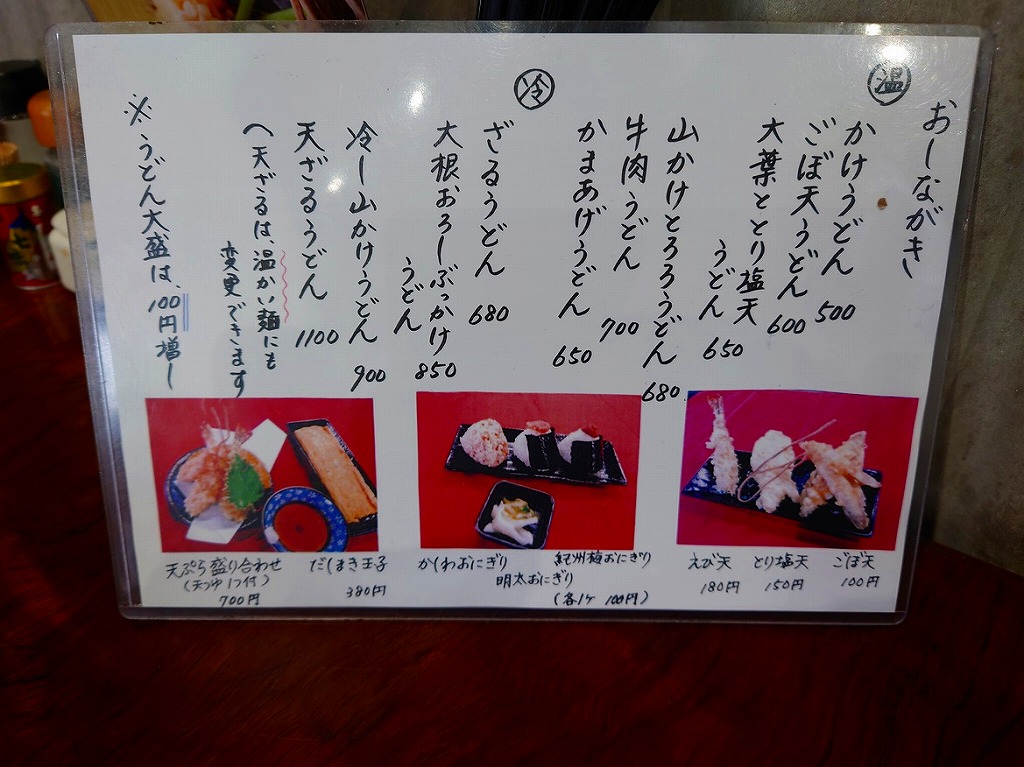 おしながき
温
かけうどん 500
ごぼ天うどん 600
大葉ととり塩天
うどん 650
山かけとろろうどん 680
牛肉うどん 700
かまあげうどん 650
冷
ざるうどん 680
大根おろしぶっかけ
うどん 850
冷し山かけうどん 900
天ざるうどん 1100
へ天ざるは、温かい麺にも
変更できます
※うどん大盛は、100円増し
天ぷら盛り合わせ
(天つゆ1つ付)
700円
だしまき玉子
380円
かしわおにぎり
紀州梅おにぎり
明太おにぎり
(各1ヶ 100円)
えび天
180円
とり塩天
150円
ごぼ天
100円